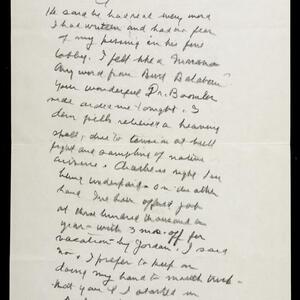 He said he had read every word
I had written and had no fear
of my pissing in his fire
lobby. I felt like a
Any word from Burt Balaban?
Your wonderful Dr.
made aided me tonight. I
pills relieved a heaving
due to tension at bull
fight and sampling of native
cuisine. Charlie is right I'm
being underpaid – on the other
hand I've been offered job
at three hundred thousand a
year – with 3 mos. off for
vacation – by Jordan. I said
no. I prefer to keep on
doing my hand to mouth
that you & I started in